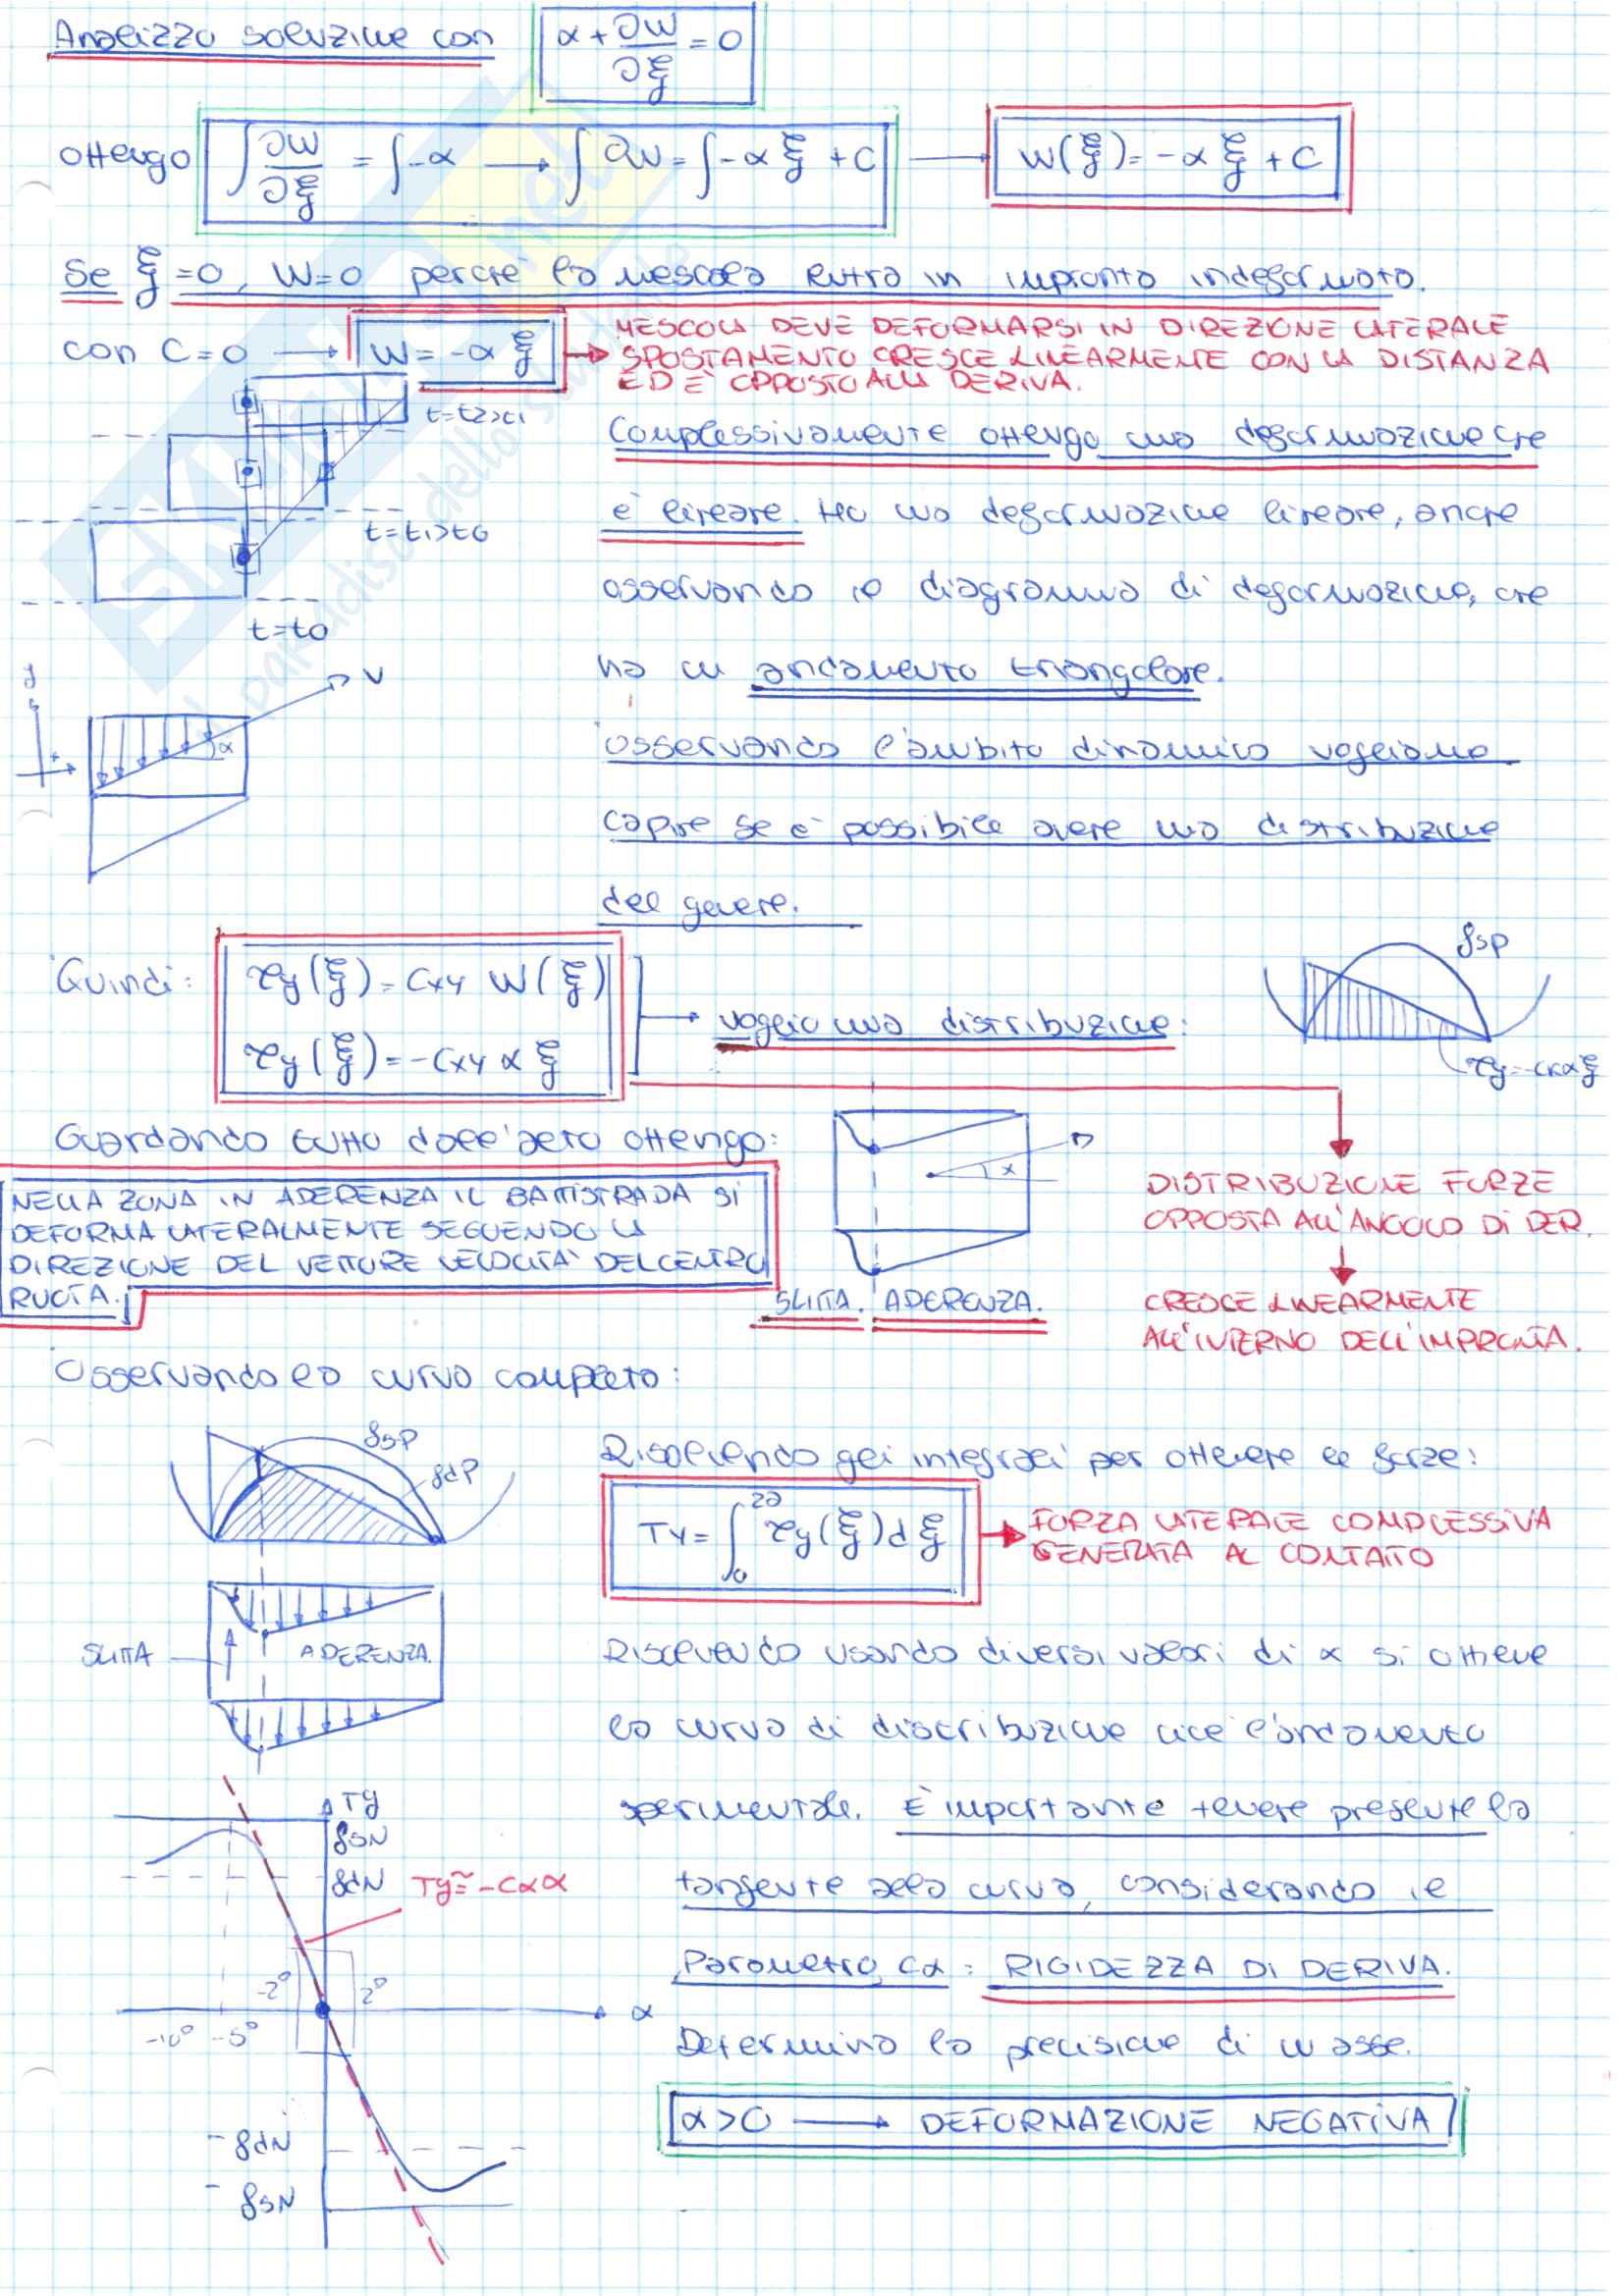 Analizzo soluzione con α + ∂W/∂ξ = 0
ottengo ∫ ∂W/∂ξ = ∫-α → ∫ ∂W = ∫-α ξ + C → W(ξ) = -α ξ + C
Se ξ = 0, W=0 perché la mescola entra in impronta indeformata.
con C=0 → W = -α ξ → MESCOLA DEVE DEFORMARSI IN DIREZIONE LATERALE
SPOSTAMENTO CRESCE LINEARMENTE CON LA DISTANZA
ED È OPPOSTO ALLA DERIVA.
t=t2>t1
t=t1>t0
t=t0
Complessivamente ottengo una deformazione che
è lineare. Ho una deformazione lineare, anche
osservando il diagramma di deformazione, che
ha un andamento triangolare.
y
V
α
osservando l'ambito dinamico vogliamo
capire se è possibile avere una distribuzione
del genere.
Quindi: τy(ξ) = Cxy W(ξ)
τy(ξ) = -Cxy α ξ
→ voglio una distribuzione:
fsp
Guardando tutto dall'alto ottengo:
NELLA ZONA IN ADERENZA IL BATTISTRADA SI
DEFORMA LATERALMENTE SEGUENDO LA
DIREZIONE DEL VETTORE VELOCITÀ DEL CENTRO
RUOTA.
α
SLITTA. ADERENZA.
DISTRIBUZIONE FORZE
OPPOSTA ALL'ANGOLO DI DER.
CRESCE LINEARMENTE
ALL'INTERNO DELL'IMPRONTA.
Osservando la curva completa:
fsp
fdp
Risolvendo gli integrali per ottenere le forze:
Ty = ∫₀²ᵃ τy(ξ)dξ → FORZA LATERALE COMPLESSIVA
GENERATA AL CONTATTO
SLITTA
ADERENZA.
Risolvendo usando diversi valori di α si ottiene
la curva di distribuzione cioè l'andamento
sperimentale. È importante tenere presente la
tangente alla curva, considerando il
Parametro Cα: RIGIDEZZA DI DERIVA.
Determina la precisione di un asse.
α>0 → DEFORMAZIONE NEGATIVA
Ty
fsN
fdN
Ty≅-Cαα
-2° 2°
α
-10° -5°
-fdN
-fsN